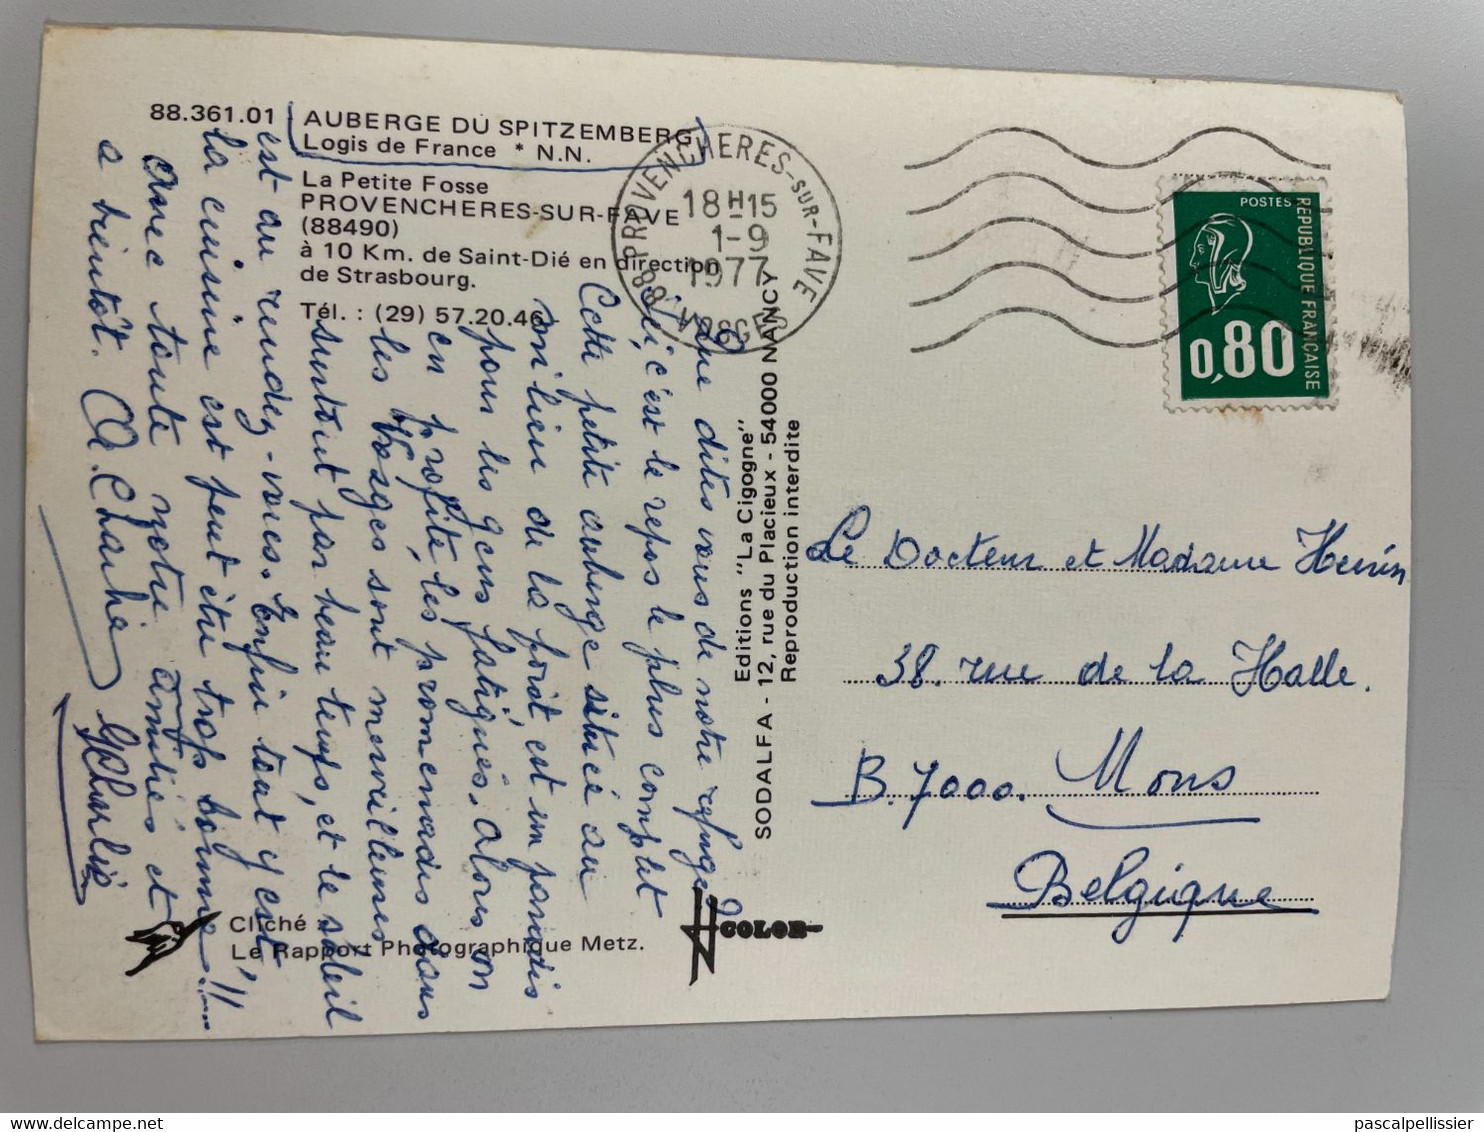 88.361.01
AUBERGE DU SPITZEMBERG
Logis de France * N.N.
La Petite Fosse
PROVENCHERES-SUR-FAVE
(88490)
à 10 Km. de Saint-Dié en direction
de Strasbourg.
Tél. : (29) 57.20.46
Que dites vous de notre refuge
ici, c'est le repos le plus complet
Cette petite auberge située au
milieu de la forêt, est un paradis
pour les gens fatigués. alors on
en profite, les promenades dans
les Vosges sont merveilleuses
surtout par beau temps, et le soleil
est au rendez-vous. Enfin tout y est,
la cuisine est peut être trop bonne!!
avec toute notre amitiés et
a bientôt.
Editions "La Cigogne"
SODALFA - 12, rue du Placieux - 54000 NANCY
Reproduction interdite
Cliché
Le Rapport Photographique Metz.
COLOR
88 PROVENCHERES-SUR-FAVE
VOSGES
18H15
1-9
1977
POSTES
REPUBLIQUE FRANÇAISE
0,80
Le Docteur et Madame Henin
38. rue de la Halle.
B. 7000. Mons
Belgique
delcampe.net
pascalpellissier